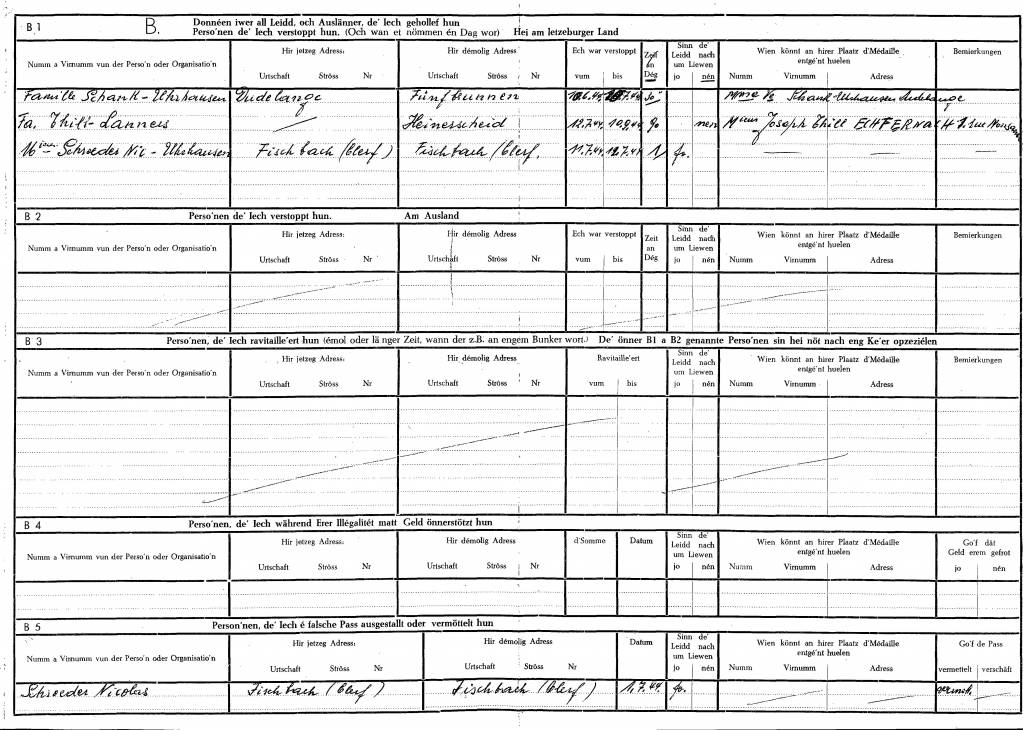 B 1 B. Donnéen iwer all Leidd, och Auslänner, de' Iech gehollef hun
Perso'nen de' Iech verstoppt hun. (Och wan et nömmen én Dag wor) Hei am letzeburger Land
Numm a Virnumm vun der Perso'n oder Organisatio'n Hir jetzeg Adress: Hir démolig Adress Ech war verstoppt Zeit an Dég Sinn de' Leidd nach um Liewen Wien könnt an hirer Plaatz d'Médaille entgé'nt huelen Bemierkungen
Urtschaft Ströss Nr Urtschaft Ströss Nr vum bis jo nén Numm Virnumm Adress
Famille Schank-Uhrhausen Dudelange Fünfbrunnen Mme Schank-Uhrhausen Dudelange
Fa. Thill-Lanners Heinerscheid 12.7.44 10.9.44 90 nen Joseph Thill ECHTERNACH
Schroeder Nic-Uhrhausen Fischbach (Clerf) Fischbach (Clerf. 11.7.44 12.7.44 1 jo.
B 2 Perso'nen de' Iech verstoppt hun. Am Ausland
Numm a Virnumm vun der Perso'n oder Organisatio'n Hir jetzeg Adress: Hir démolig Adress Ech war verstoppt Zeit an Dég Sinn de' Leidd nach um Liewen Wien könnt an hirer Plaatz d'Médaille entgé'nt huelen Bemierkungen
Urtschaft Ströss Nr Urtschaft Ströss Nr vum bis jo nén Numm Virnumm Adress
B 3 Perso'nen, de' Iech ravitaille'ert hun (émol oder lä nger Zeit, wann der z.B. an engem Bunker wort.) De' önner B1 a B2 genannte Perso'nen sin hei nöt nach eng Ke'er opzeziélen
Numm a Virnumm vun der Perso'n oder Organisatio'n Hir jetzeg Adress: Hir démolig Adress Ravitaille'ert Sinn de' Leidd nach um Liewen Wien könnt an hirer Plaatz d'Médaille entgé'nt huelen Bemierkungen
Urtschaft Ströss Nr Urtschaft Ströss Nr vum bis jo nén Numm Virnumm Adress
B 4 Perso'nen, de' Iech während Erer Illégalitét matt Geld önnerstötzt hun
Numm a Virnumm vun der Perso'n oder Organisatio'n Hir jetzeg Adress: Hir démolig Adress d'Somme Datum Sinn de' Leidd nach um Liewen Wien könnt an hirer Plaatz d'Médaille entgé'nt huelen Go'f dât Geld erem gefrot
Urtschaft Ströss Nr Urtschaft Ströss Nr jo nén Numm Virnumm Adress jo nén
B 5 Person'nen, de' Iech é falsche Pass ausgestallt oder vermöttelt hun
Numm a Virnumm vun der Perso'n oder Organisatio'n Hir jetzeg Adress: Hir démolig Adress Datum Sinn de' Leidd nach um Liewen Wien könnt an hirer Plaatz d'Médaille entgé'nt huelen Go'f de Pass
Urtschaft Ströss Nr Urtschaft Ströss Nr jo nén Numm Virnumm Adress vermettelt verschäft
Schroeder Nicolas Fischbach (Clerf) Fischbach (Clerf) 1.7.44. jo.